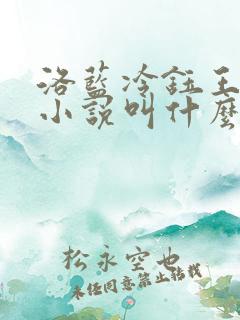 洛蓝冷钰王
小说叫什麼
松永空也
未经同意禁止转载